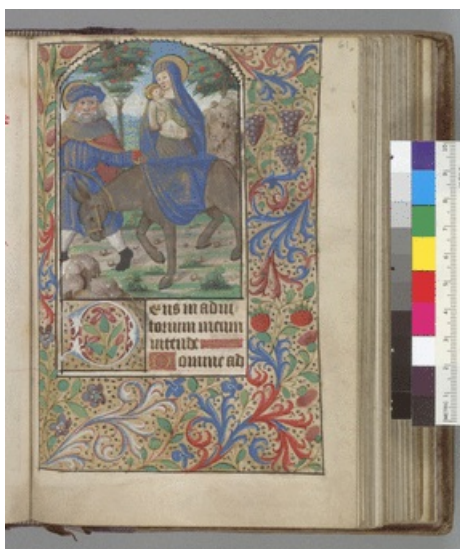 Deus in adiu
torium meum
intende
Domine ad